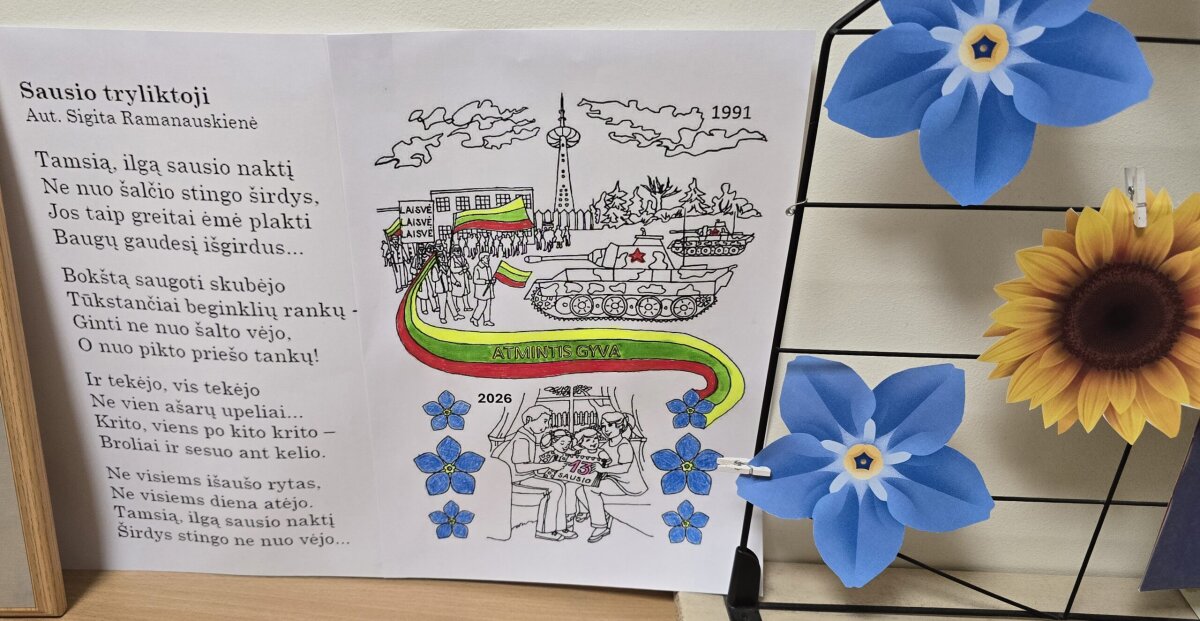 Sausio tryliktoji
Aut. Sigita Ramanauskienė
Tamsią, ilgą sausio naktį
Ne nuo šalčio stingo širdys,
Jos taip greitai ėmė plakti
Baugų gaudesį išgirdus...
Bokštą saugoti skubėjo
Tūkstančiai beginklių rankų -
Ginti ne nuo šalto vėjo,
O nuo pikto priešo tankų!
Ir tekėjo, vis tekėjo
Ne vien ašarų upeliai...
Krito, viens po kito krito –
Broliai ir sesuo ant kelio.
Ne visiems išaušo rytas,
Ne visiems diena atėjo.
Tamsią, ilgą sausio naktį
Širdys stingo ne nuo vėjo...
1991
LAISVĖ
LAISVĖ
LAISVĖ
ATMINTIS GYVA
2026
13
SAUSIO